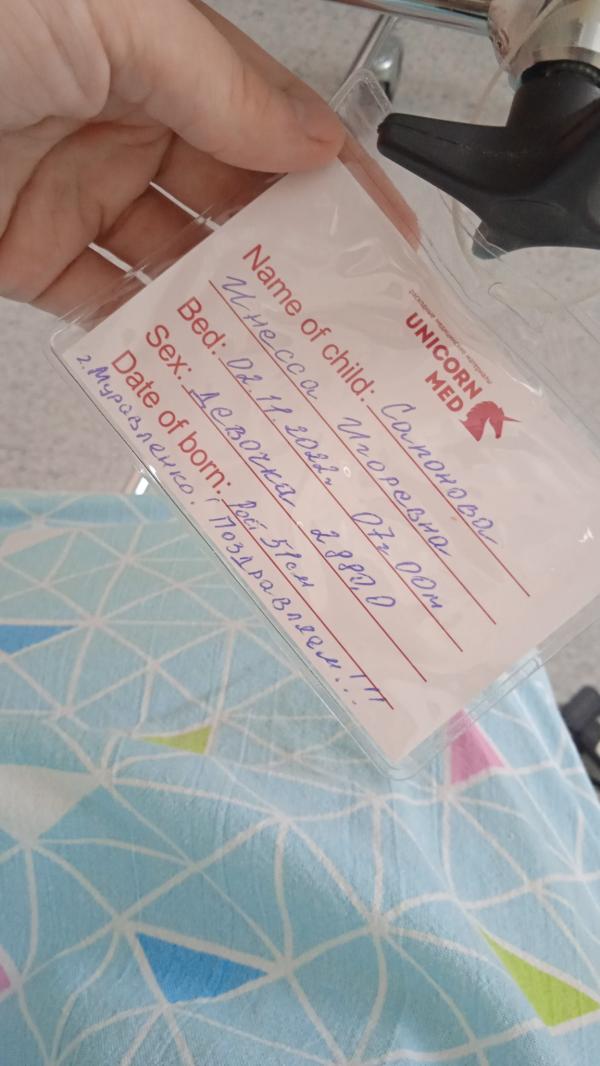 UNICORN
MED
Name of child: Сапонова
Инесса Игоревна
Bed: 02.11.2022г 07ч 00м
Sex: Девочка 2880,0
Date of born: Рост 51см
г. Муравленко. Поздравляем!!!